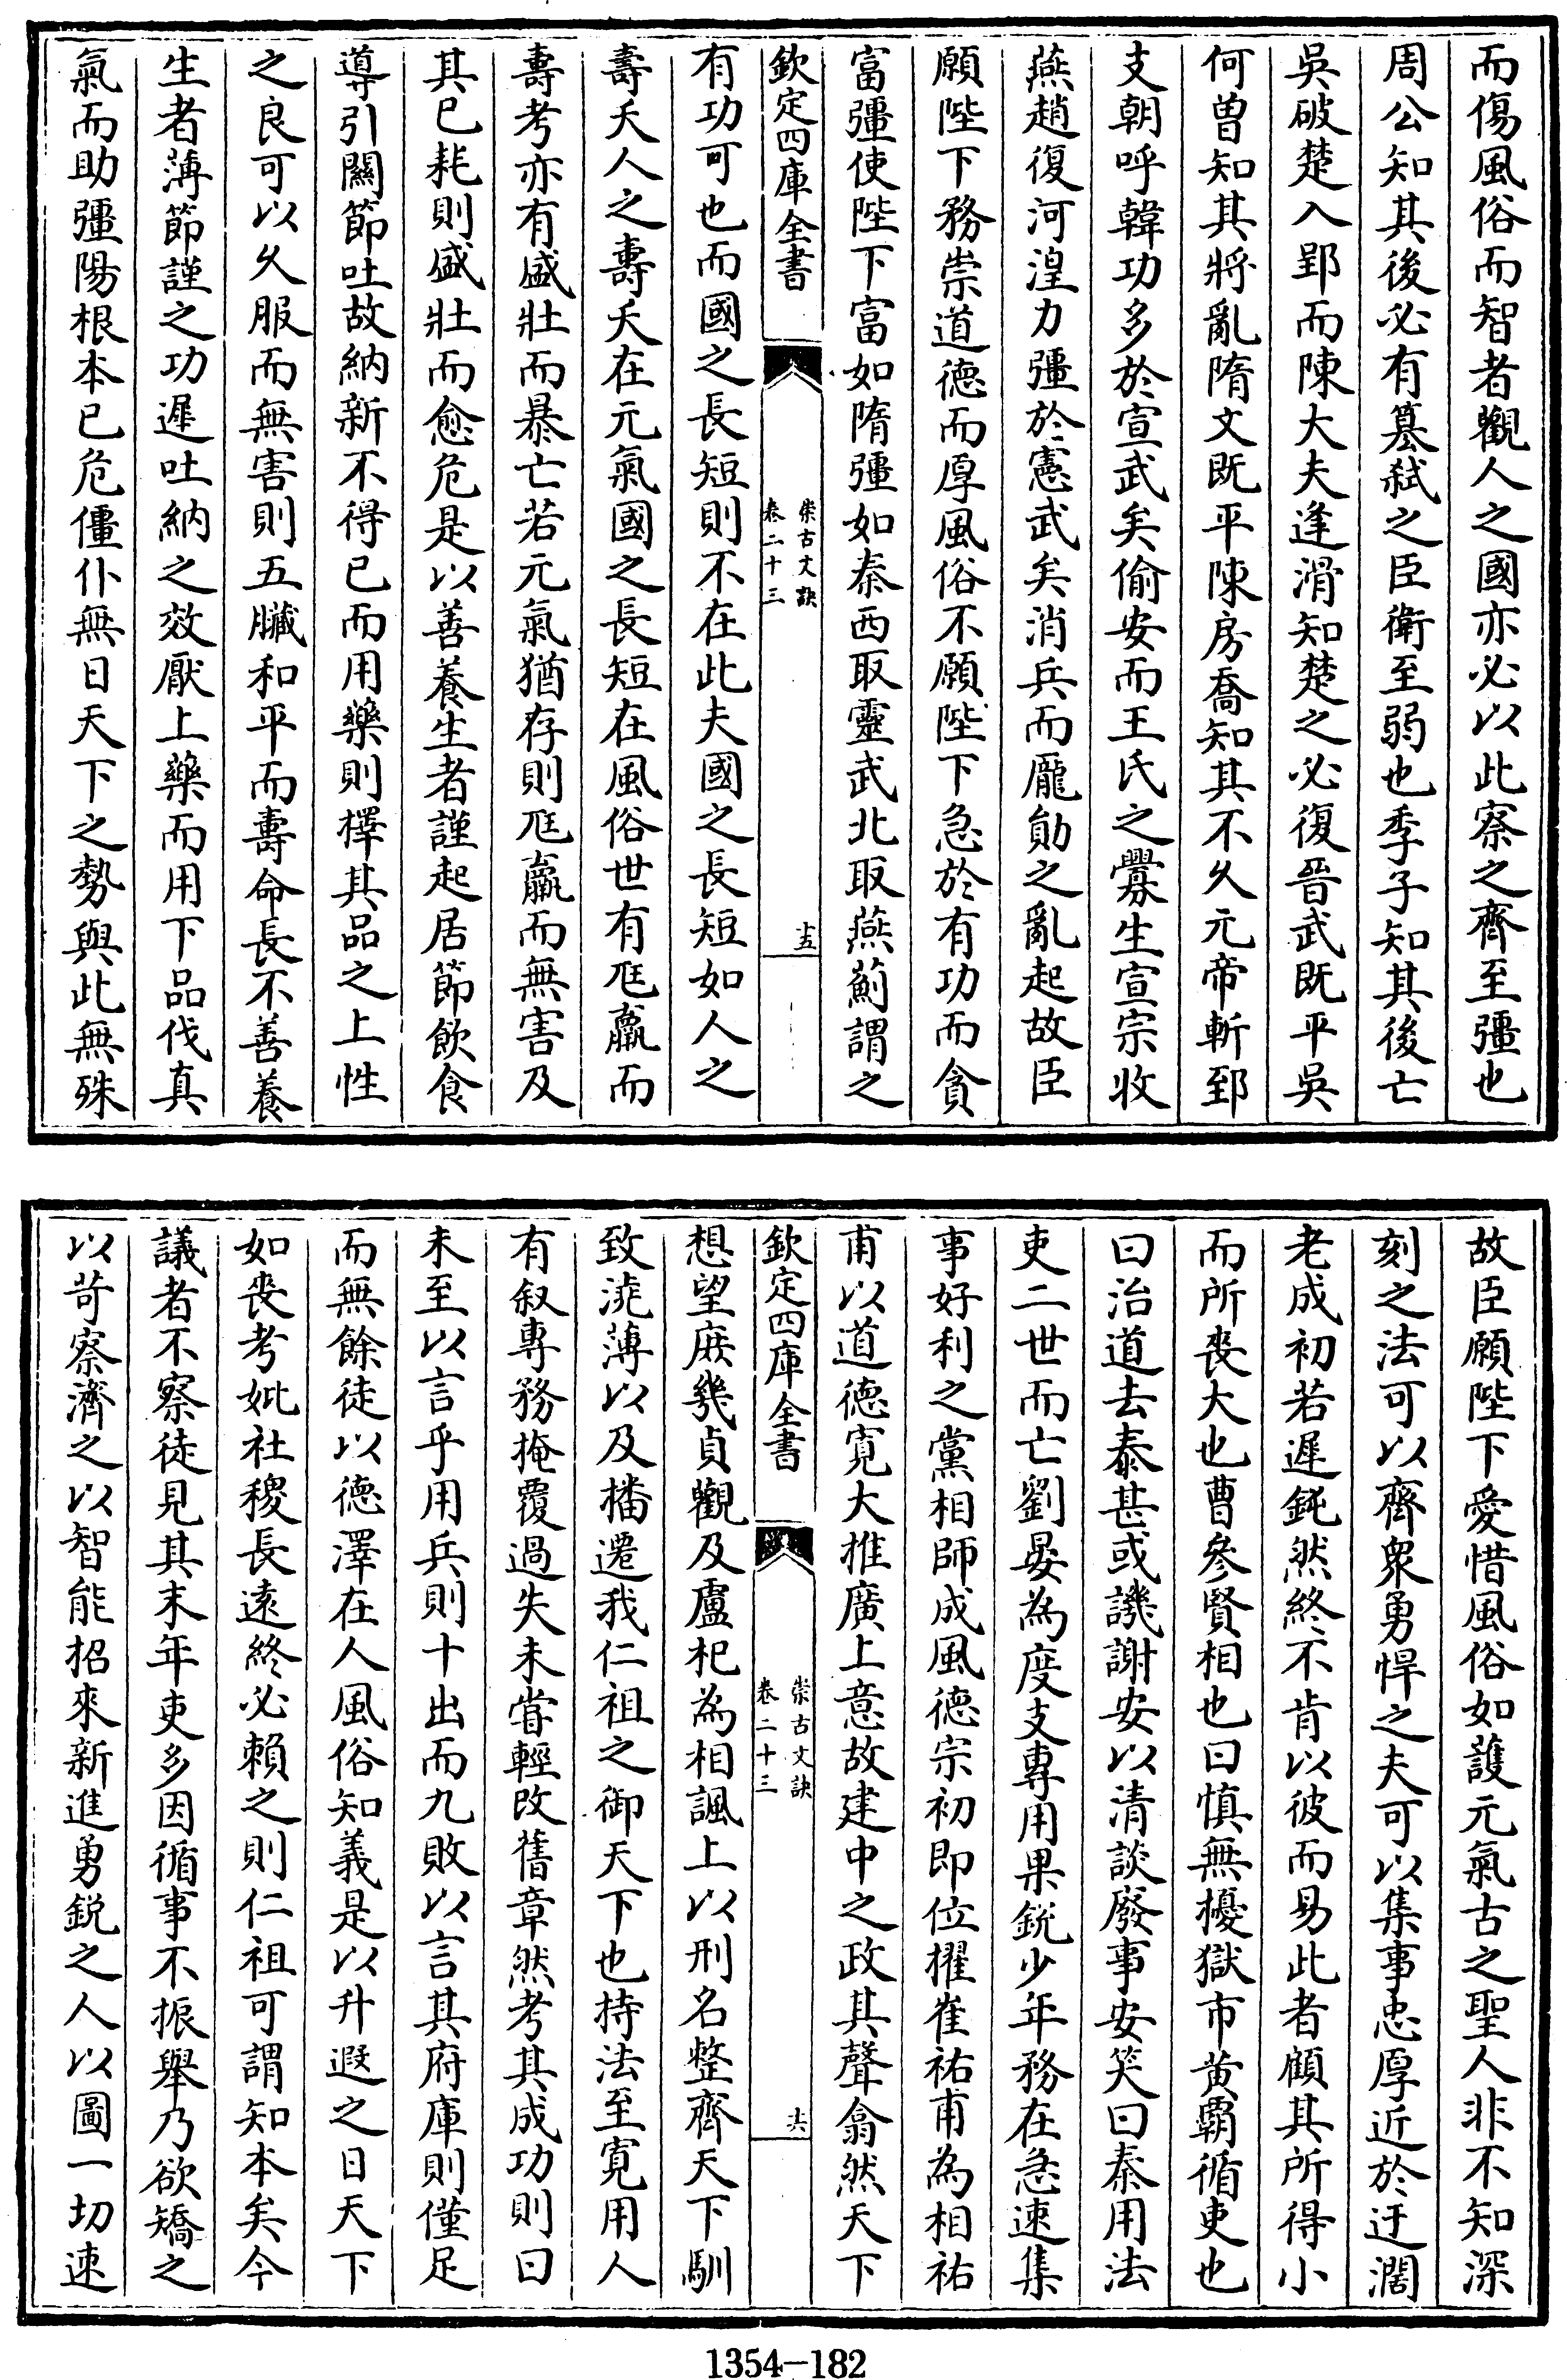 而傷風俗而智者觀人之國亦必以此察之齊至彊也
周公知其後必有簒弑之臣衛至弱也季子知其後亡
吳破楚入郢而陳大夫逢滑知楚之必復晉武既平吳
何曾知其將亂隋文既平陳房喬知其不久元帝斬郅
支朝呼韓功多於宣武矣偷安而王氏之釁生宣宗收
燕趙復河湟力彊於憲武矣消兵而龐勛之亂起故臣
願陛下務崇道德而厚風俗不願陛下急於有功而貪
富彊使陛下富如隋彊如秦西取靈武北取燕薊謂之
欽定四庫全書
崇古文訣
卷二十三
十五
有功可也而國之長短則不在此夫國之長短如人之
壽夭人之壽夭在元氣國之長短在風俗世有尫羸而
壽考亦有盛壯而暴亡若元氣猶存則尫羸而無害及
其已耗則盛壯而愈危是以善養生者謹起居節飲食
導引關節吐故納新不得已而用藥則擇其品之上性
之良可以久服而無害則五臟和平而壽命長不善養
生者薄節謹之功遲吐納之效厭上藥而用下品伐真
氣而助彊陽根本已危僵仆無日天下之勢與此無殊
故臣願陛下愛惜風俗如護元氣古之聖人非不知深
刻之法可以齊衆勇悍之夫可以集事忠厚近於迂濶
老成初若遲鈍然終不肯以彼而易此者顧其所得小
而所喪大也曹參賢相也曰慎無擾獄市黄霸循吏也
曰治道去泰甚或譏謝安以清談廢事安笑曰秦用法
吏二世而亡劉晏為度支專用果鋭少年務在急速集
事好利之黨相師成風德宗初即位擢崔祐甫為相祐
甫以道德寛大推廣上意故建中之政其聲翕然天下
欽定四庫全書
崇古文訣
卷二十三
十六
想望庶幾貞觀及盧杞為相諷上以刑名整齊天下馴
致澆薄以及播遷我仁祖之御天下也持法至寛用人
有叙專務掩覆過失未嘗輕改舊章然考其成功則曰
未至以言乎用兵則十出而九敗以言其府庫則僅足
而無餘徒以德澤在人風俗知義是以升遐之日天下
如喪考妣社稷長逺終必賴之則仁祖可謂知本矣今
議者不察徒見其末年吏多因循事不振舉乃欲矯之
以苛察濟之以智能招來新進勇鋭之人以圖一切速
1354-182